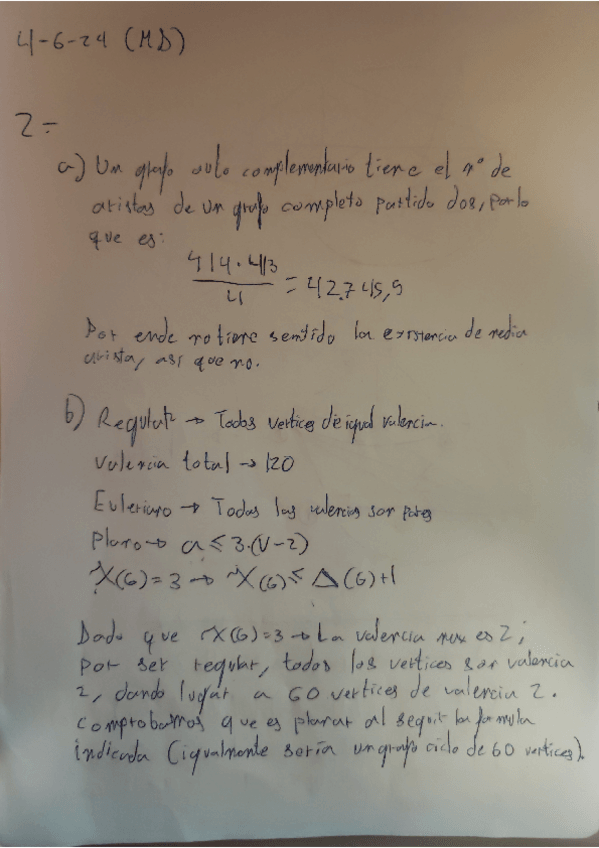 4-6-24 (MD)
2-
a) Un grafo auto complementario tiene el nº de
aristas de un grafo completo partido dos, por lo
que es:
414·413
4
= 42.745,5
Por ende no tiene sentido la existencia de media
arista, así que no.
b) Regular → Todos vertices de igual valencia.
Valencia total → 120
Euleriano → Todas las valencias son pares
Plano → a ≤ 3·(V-2)
X(G)=3 → X(G) ≤ Δ(G)+1
Dado que X(G)=3 → La valencia max es 2;
por ser regular, todos los vertices son valencia
2, dando lugar a 60 vertices de valencia 2.
Comprobamos que es planar al seguir la formula
indicada (igualmente seria un grafo ciclo de 60 vertices).